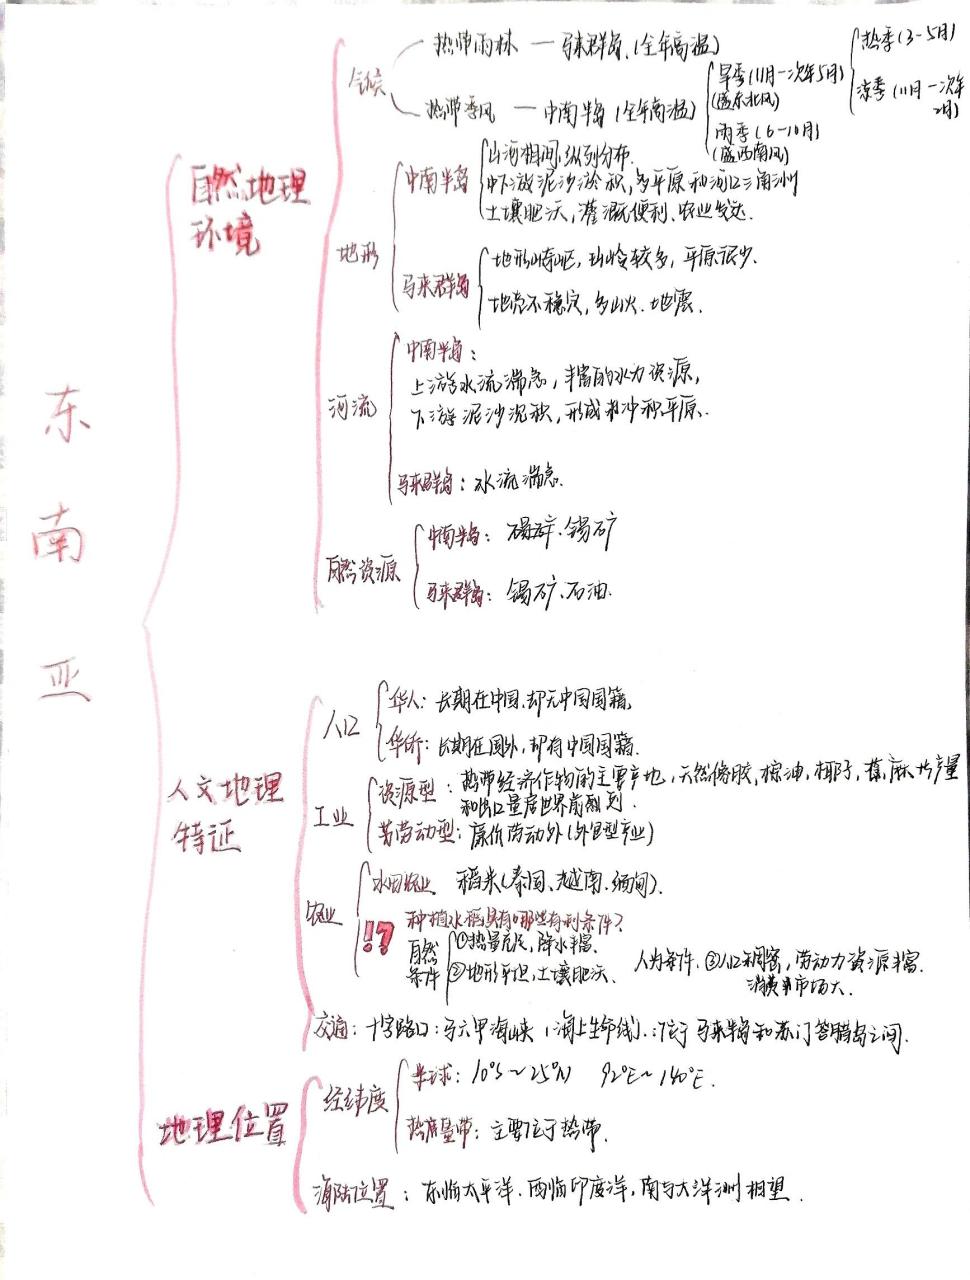 东南亚
自然地理
环境
气候
热带雨林 — 马来群岛(全年高温)
热带季风 — 中南半岛(全年高温)
旱季(11月-次年5月)
(盛东北风)
热季(3-5月)
凉季(11月-次年
2月)
雨季(6-10月)
(盛西南风)
地形
中南半岛
山河相间,纵列分布.
中下游泥沙淤积,多平原和河口三角洲
土壤肥沃,灌溉便利、农业发达.
马来群岛
地形崎岖,山岭较多,平原很少.
地壳不稳定,多山火、地震.
河流
中南半岛:
上游水流湍急,丰富的水力资源,
下游泥沙沉积,形成冲积平原.
马来群岛:水流湍急.
自然资源
中南半岛: 锡矿
马来群岛:锡矿、石油.
人文地理
特征
人口
华人:长期在中国,却无中国国籍.
华侨:长期在国外,却有中国国籍.
工业
资源型:热带经济作物的主要产地,天然橡胶,棕油,椰子,蕉麻出产量
和出口量居世界前列.
劳动型:廉价劳动外(外包型产业)
农业
水田农业 稻米(泰国、越南、缅甸).
!? 种植水稻具有哪些有利条件?
自然
条件
①热量充足,降水丰富.
②地形平坦,土壤肥沃.
人为条件.③人口稠密,劳动力资源丰富.
消费市场大.
交通:十字路口:马六甲海峡(海上生命线).:位于马来半岛和苏门答腊岛之间.
地理位置
经纬度
半球:10°S~25°N 92°E~140°E.
热量带:主要位于热带.
海陆位置:东临太平洋、西临印度洋,南与大洋洲相望.